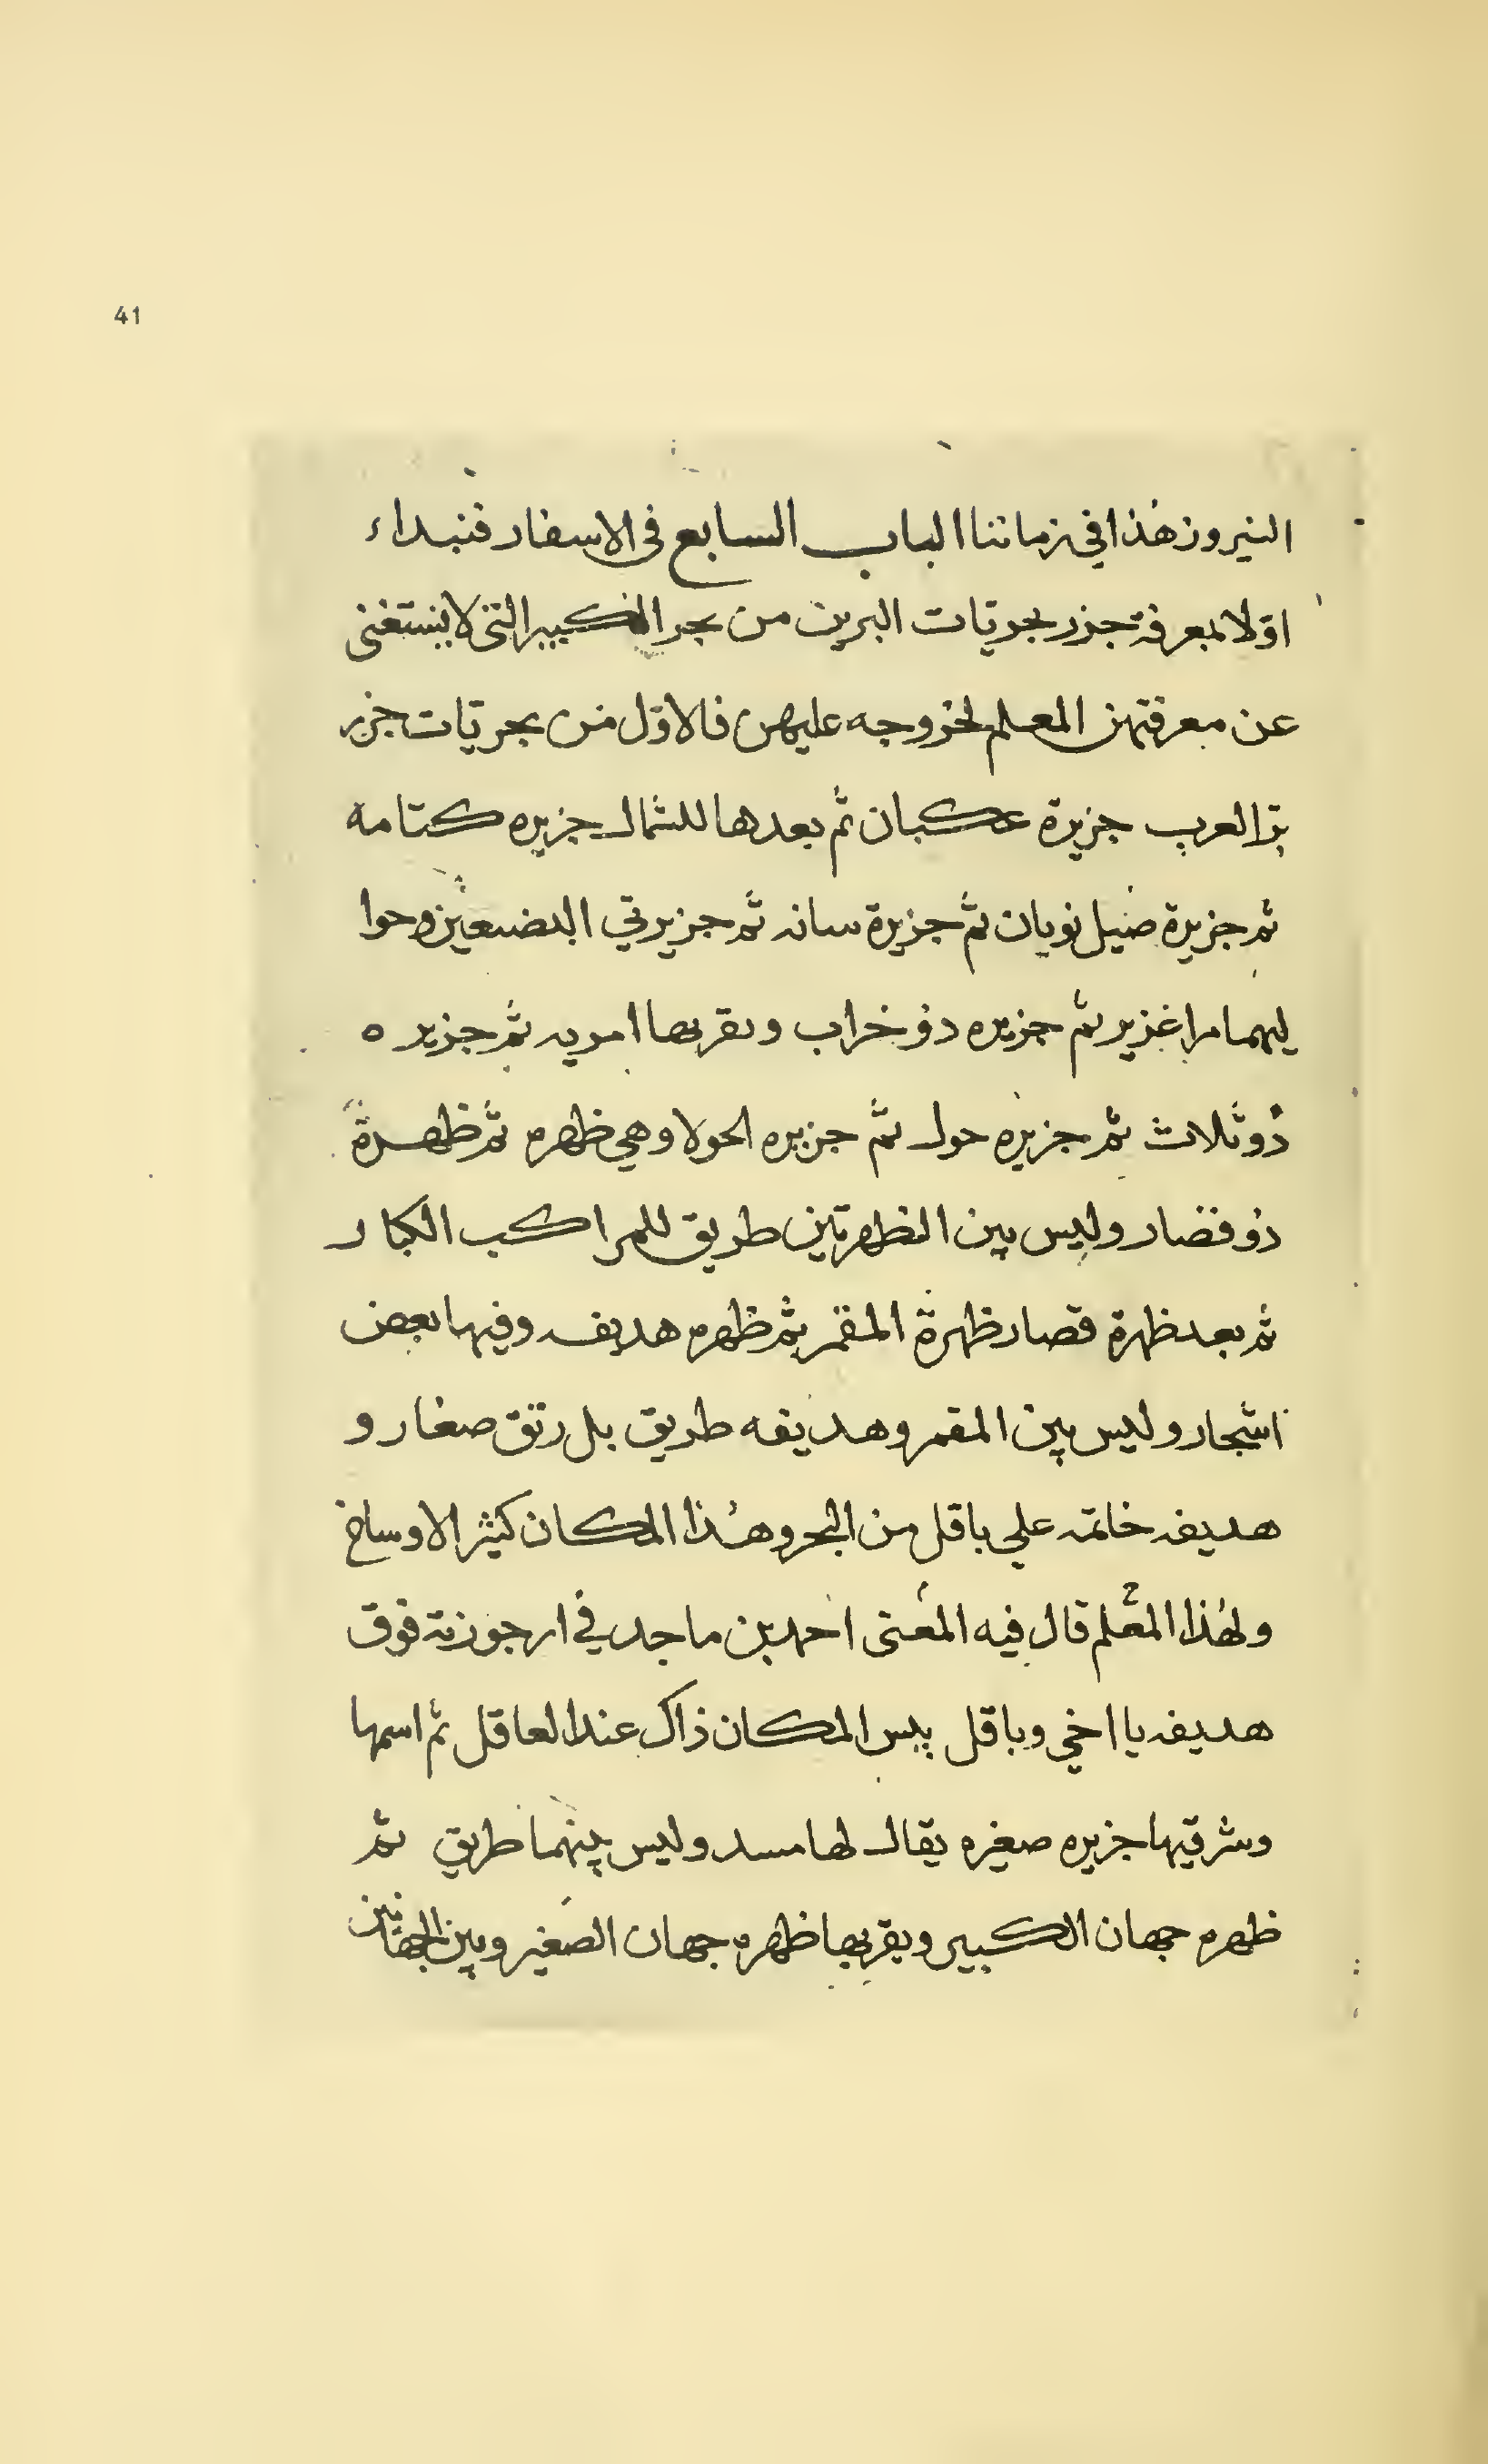 41
النيروز هٰذا في زماننا الباب السابع في الاسفار فنبداء
اوّلا لمعرفة جزر بحريّات البرين من بحر الكبير التي لا يستغني
عن معرفتهن المعلم لخروجه عليهن فالاوّل من بحريّات جزر
برّ العرب جزيرة عكبان ثم بعدها للشمال جزيره كتامه
ثم جزيرة صنيل نوبان ثم جزيرة سانه ثم جزيرتي البضيعين وحوا
ليهما مرا غزير ثم جزيره ذو خراب وبقربها امريه ثم جزيره
ذو ثلاث ثم جزيره حول ثم جزيره الحولا وهي ظهره ثم ظهرة
ذو فضار وليس بين الظهرتين طريق للمراكب الكبار
ثم بعد ظهرة قصار ظهرة المقمر ثم ظهره هديفه وفيها بعض
اشجار وليس بين المقمر وهديفه طريق بل رتق صغار و
هديفه خاتمه علي باقل من البحر وهٰذا المكان كثير الاوساخ
ولهٰذا المعّلم قال فيه المعنى احمد بن ماجد في ارجوزته فوق
هديفه يا اخي وباقل بيس المكان ذاك عند العاقل ثم اسمها
وشرقيها جزيره صغيره يقال لها مسد وليس بينهما طريق ثم
ظهره جهان الكبير وبقربها ظهره جهان الصغير وبين الجهانين